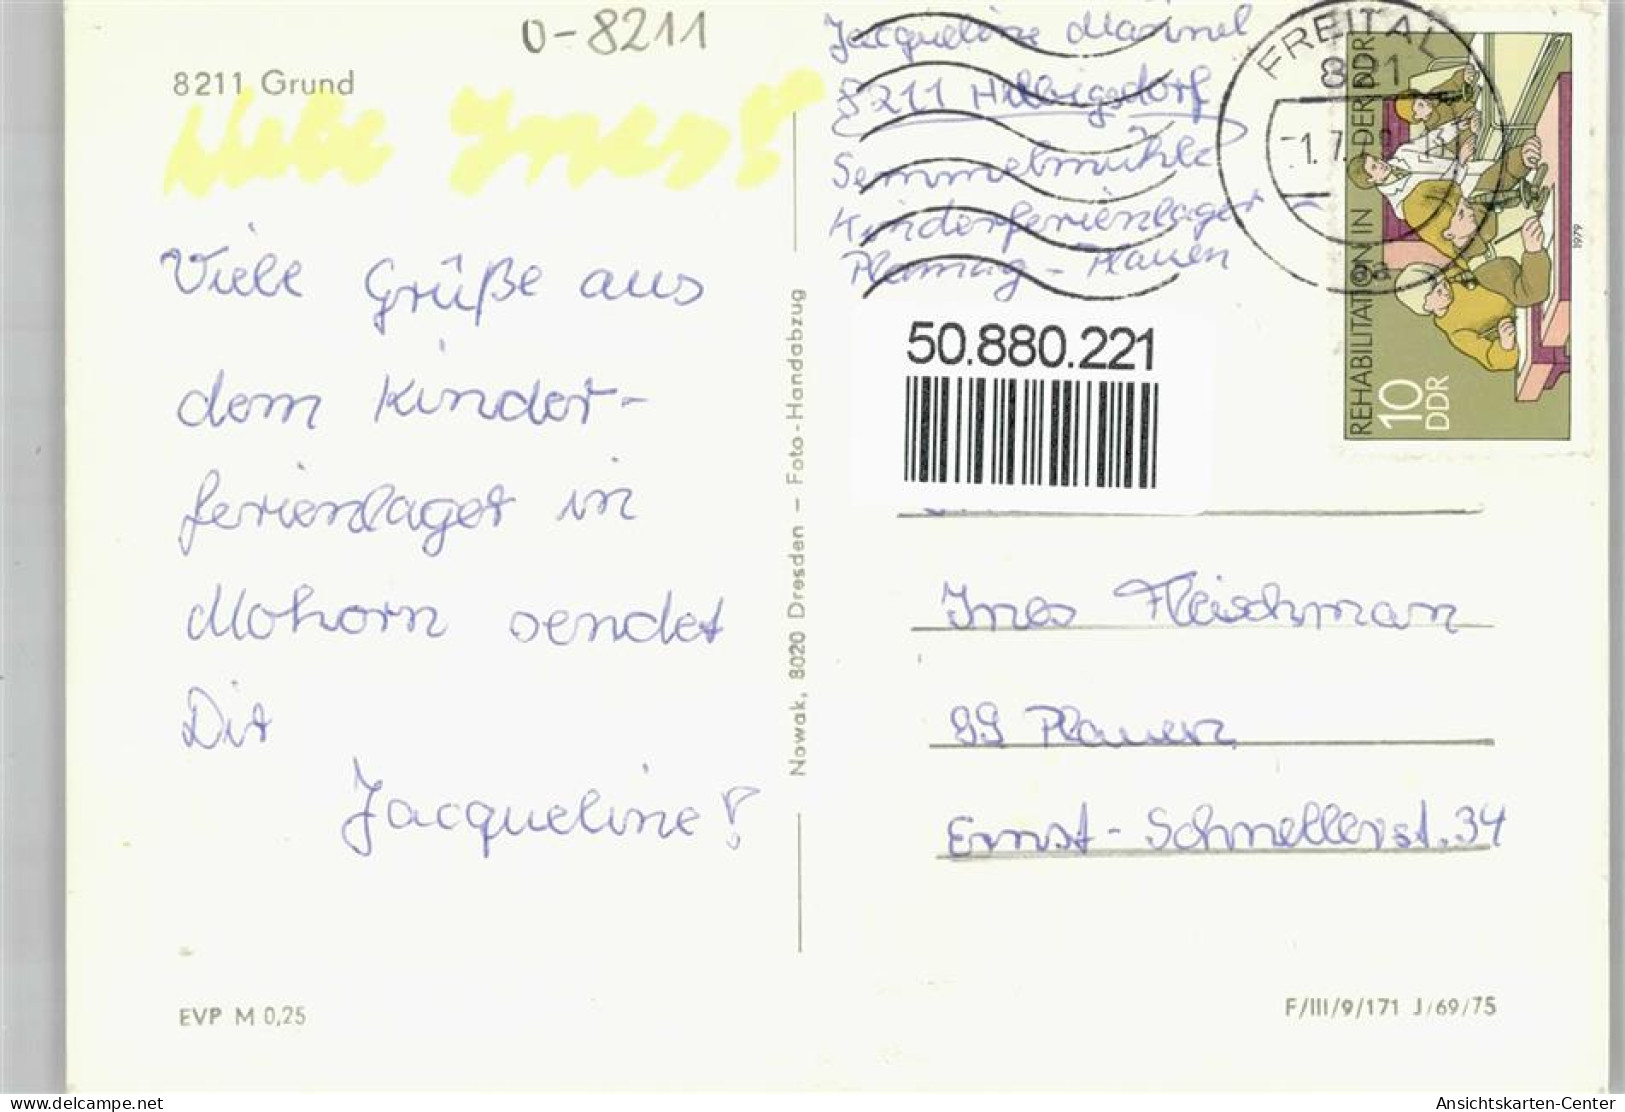 0-8211
8211 Grund
Liebe Ines!
Viele Grüße aus
dem Kinder-
ferienlager in
Mohorn sendet
Dir
Jacqueline!
EVP M 0,25
Nowak, 8020 Dresden – Foto-Handabzug
Jacqueline
8211 Helbigsdorf
Semmelmühle
Kinderferienlager -
Plamag - Plauen
FREITAL
821
REHABILITATION IN DER DDR
10
DDR
1979
50.880.221
Ines Fleischmann
99 Plauen
Ernst-Schnellerst. 34
F/III/9/171 J/69/75
www.ansichtskarten-center.de
Ansichtskarten-Center